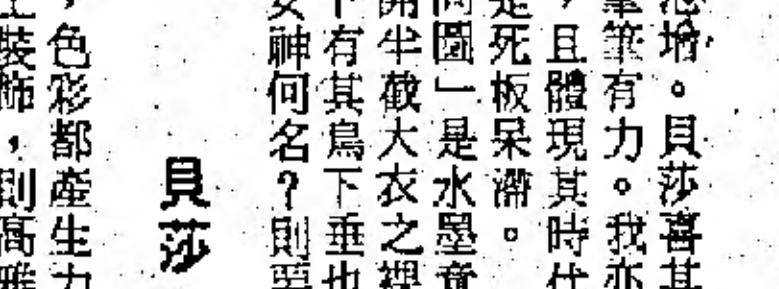 增。貝莎喜其
筆筆有力。我亦
，且體現其時代
是死板呆滯。
圖」是水墨意
開半截大衣之裡
下有其鳥下垂也
女神何名？則
貝莎
，色彩都產生力
裝飾，則高雅